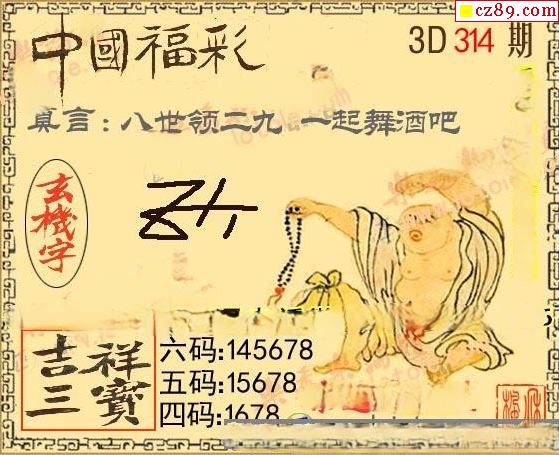 cz89.com
中國福彩
3D 314 期
真言:八世领二九 一起舞酒吧
玄機字
吉祥
三寶
六码:145678
五码:15678
四码:1678